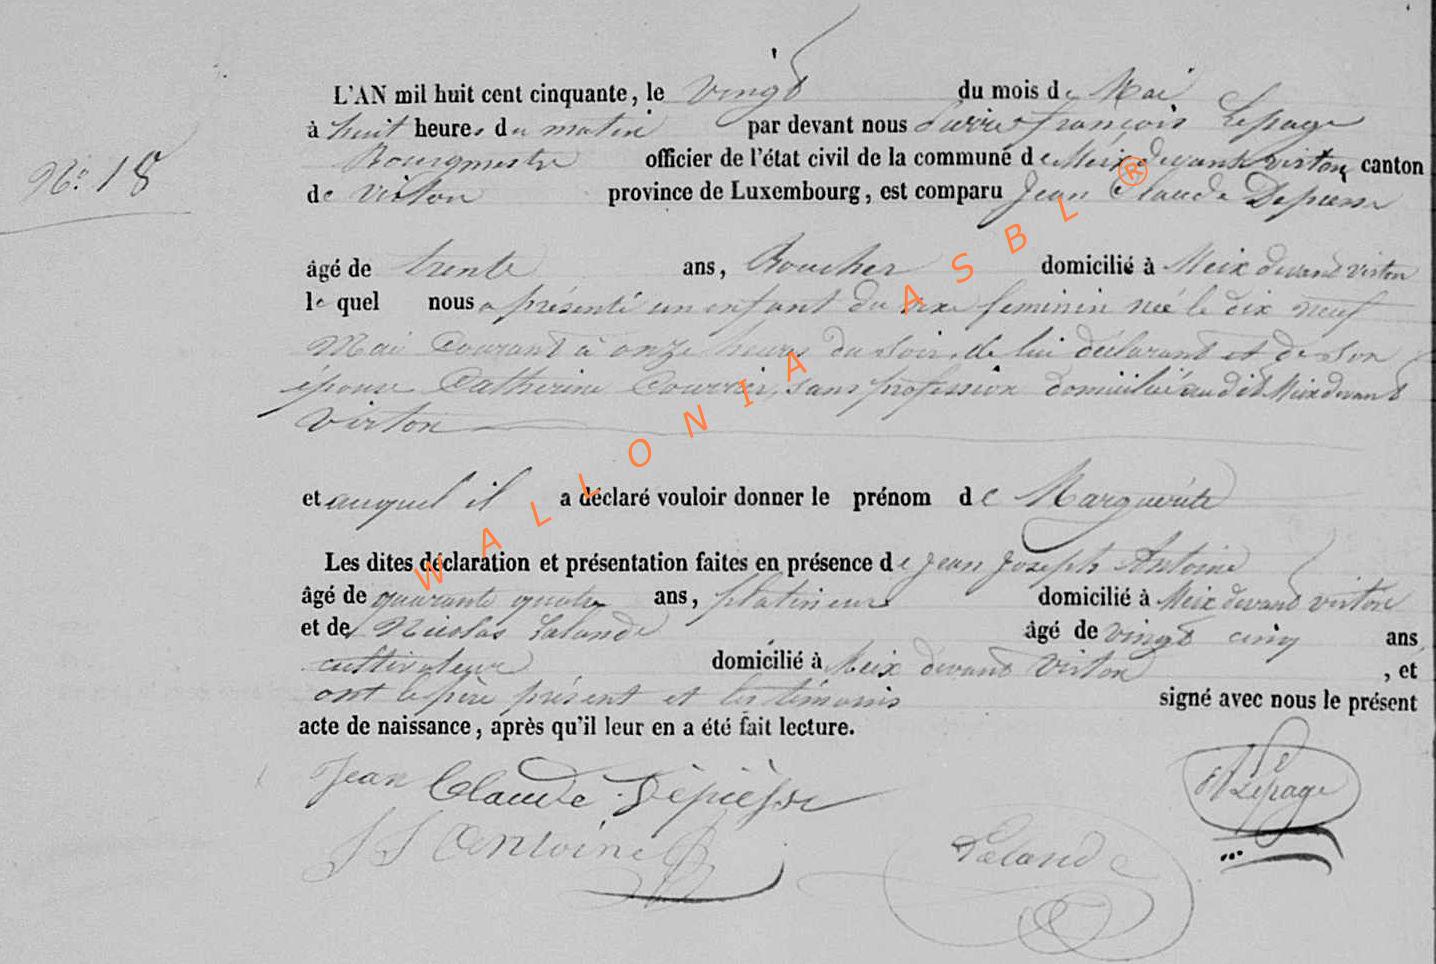 L'AN mil huit cent cinquante, le vingt du mois de Mai
à huit heures du matin par devant nous Pierre françois Lepage
No. 18
Bourgmestre officier de l'état civil de la commune de Meix devant virton, canton
de Virton province de Luxembourg, est comparu Jean Claude Depiesse
âgé de trente ans, Boucher domicilié à Meix devant virton
lequel nous a présenté un enfant du sexe feminin née le dix neuf
Mai Courant à onze heures du soir, de lui déclarant et de son
épouse Catherine Courrier, sans profession domiciliée audit Meix devant
Virton
et auquel il a déclaré vouloir donner le prénom de Marguerite
Les dites déclaration et présentation faites en présence de Jean Joseph Antoine
âgé de quarante quatre ans, platineur domicilié à Meix devant virton
et de Nicolas Lalande âgé de vingt cinq ans
cultivateur domicilié à Meix devant Virton, et
ont le père présent et les témoins signé avec nous le présent
acte de naissance, après qu'il leur en a été fait lecture.
Jean Claude Dépiesse
Lepage
JJ Antoine
Lalande
WALLONIA ASBL ®